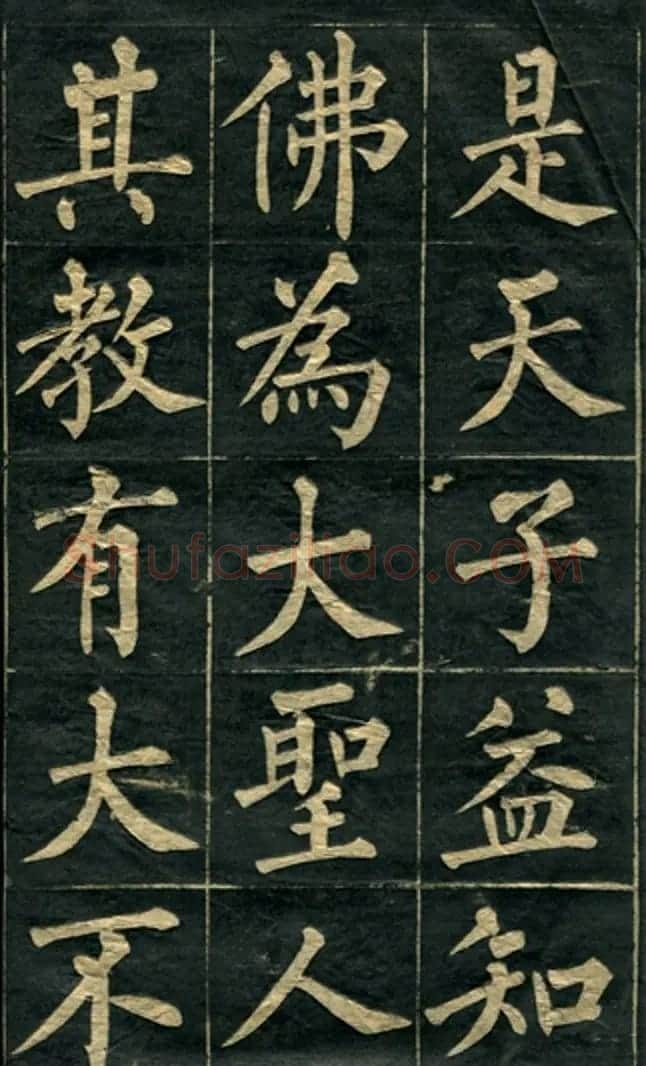 是天子益知
佛為大聖人
其教有大不
Shufaziliao.COM